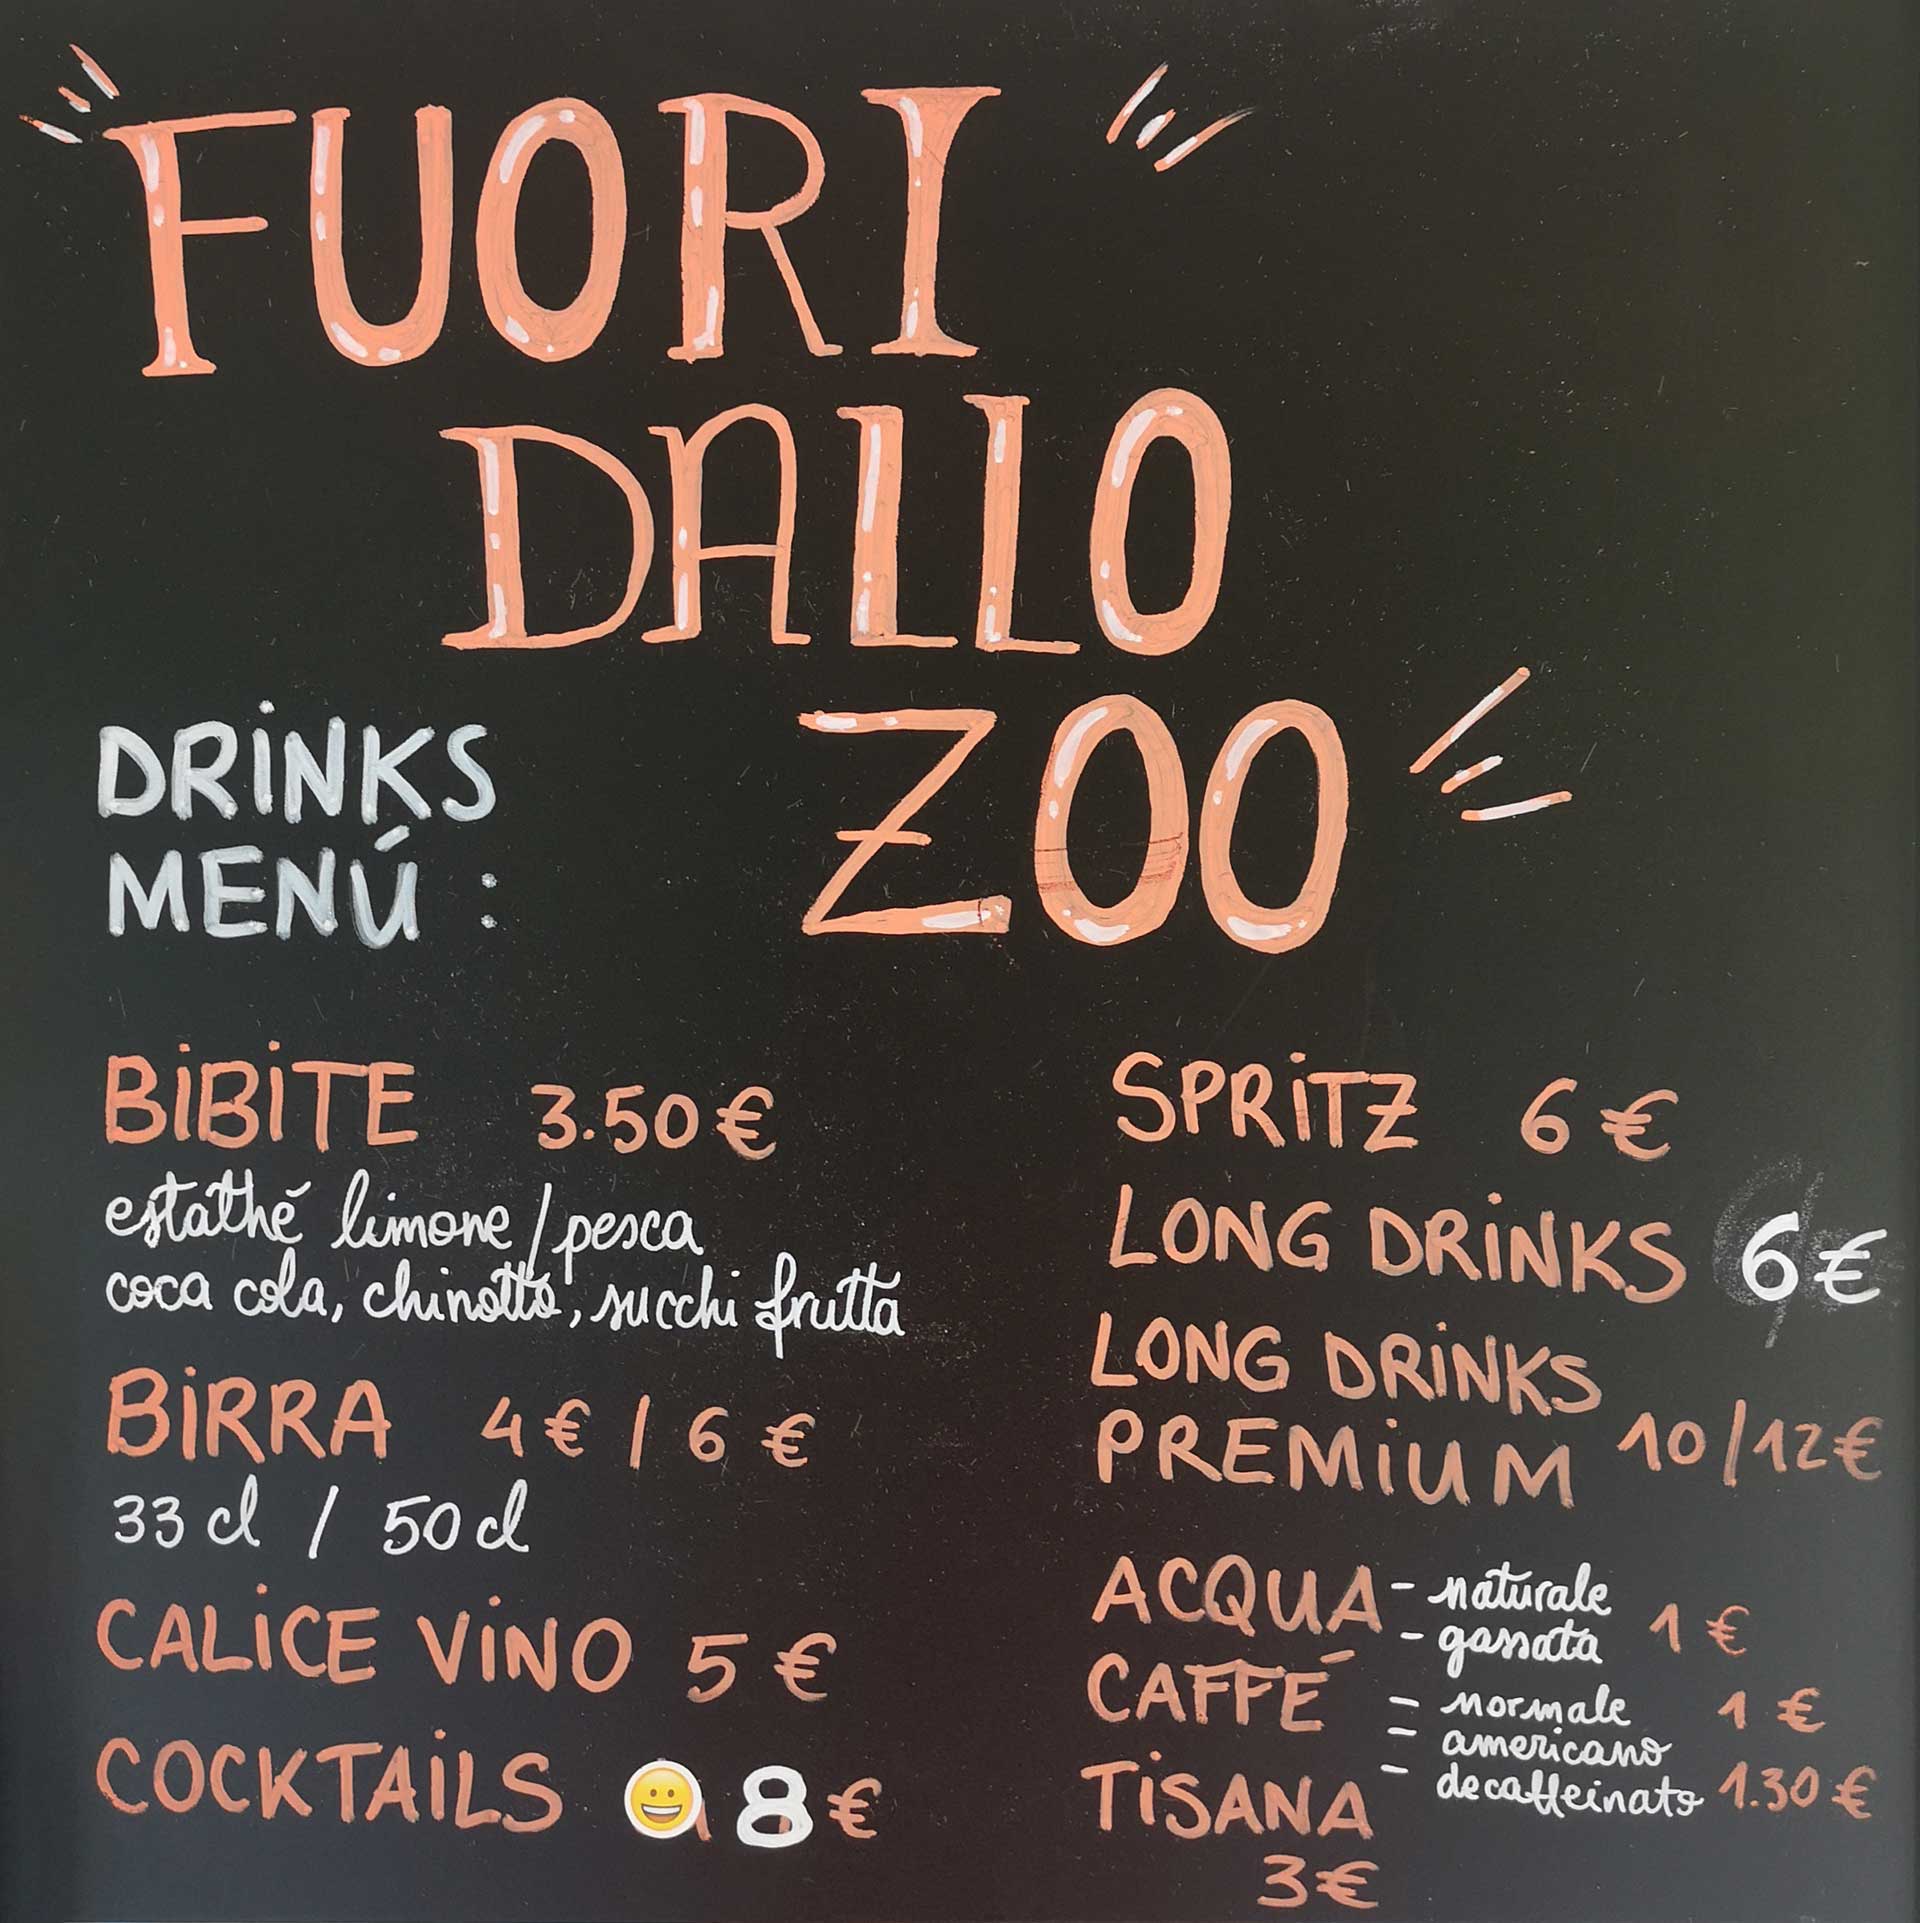 FUORI
DALLO
ZOO
DRINKS
MENÚ :
BIBITE 3.50€
estathé limone/pesca
coca cola, chinotto, succhi frutta
BIRRA 4€ / 6€
33 cl / 50 cl
CALICE VINO 5€
COCKTAILS 😀 8€
SPRITZ 6€
LONG DRINKS 6€
LONG DRINKS
PREMIUM 10/12€
ACQUA - naturale
- gassata 1€
CAFFÉ - normale 1€
- americano
- decaffeinato 1.30€
TISANA
3€